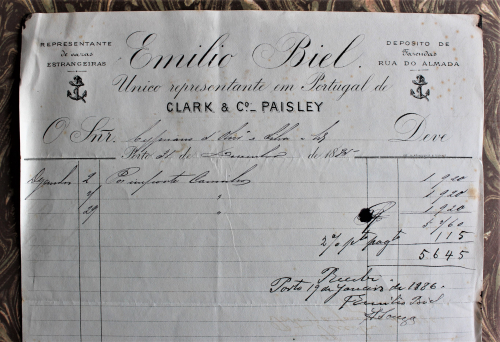 REPRESENTANTE
de casas
ESTRANGEIRAS
Emilio Biel.
DEPOSITO DE
Fazendas
RUA DO ALMADA
Unico representante em Portugal de
CLARK & Co_ PAISLEY
O Snr. Deve
Porto 25 de de 1885
2 1,920
" 1,920
29 " 1,920
5,760
2% pto pagto 115
5645
Recebi
Porto 19 de Janeiro de 1886.
Emilio Biel